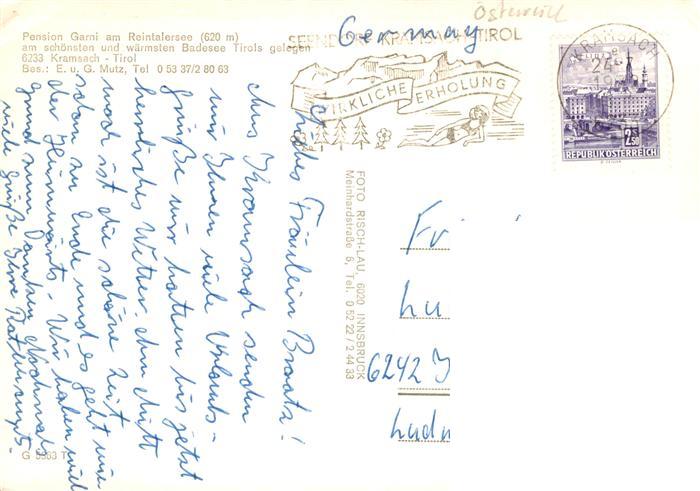 Pension Garni am Reintalersee (620 m)
am schönsten und wärmsten Badesee Tirols gelegen
6233 Kramsach - Tirol
Bes.: E. u. G. Mutz, Tel 0 53 37/2 80 63
Germany
Österreich
SEENDORF KRAMSACH TIROL
WIRKLICHE ERHOLUNG
KRAMSACH
24.
19
2.50
REPUBLIK ÖSTERREICH
Liebes Fräulein Braatz!
Aus Kramsach senden
wir Ihnen viele Urlaubs-
grüße wir hatten bis jetzt
herrliches Wetter.
noch ist die schöne Zeit
schon zu Ende und es geht wie
der Heimwärts. Wir haben viel
Nochmals
viele Grüße Ihre
FOTO RISCH-LAU, 6020 INNSBRUCK
Meinhardstraße 6, Tel. 0 52 22 / 2 44 33
Fr
Lu
6242
Ludw
G 5563 T